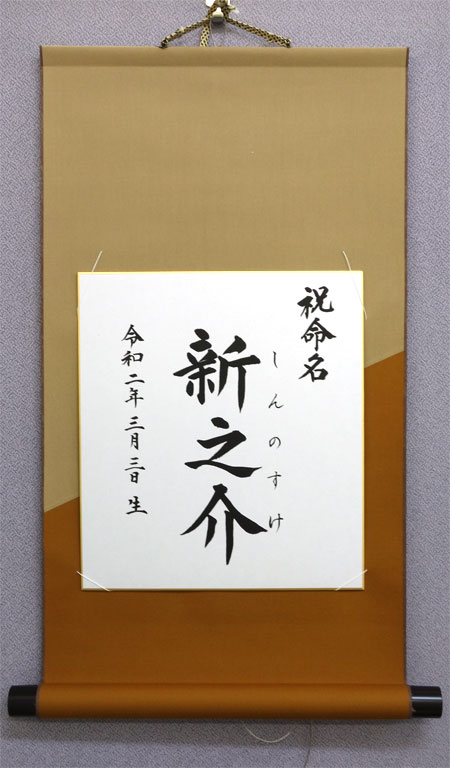 祝命名
しんのすけ
新之介
令和二年三月三日生